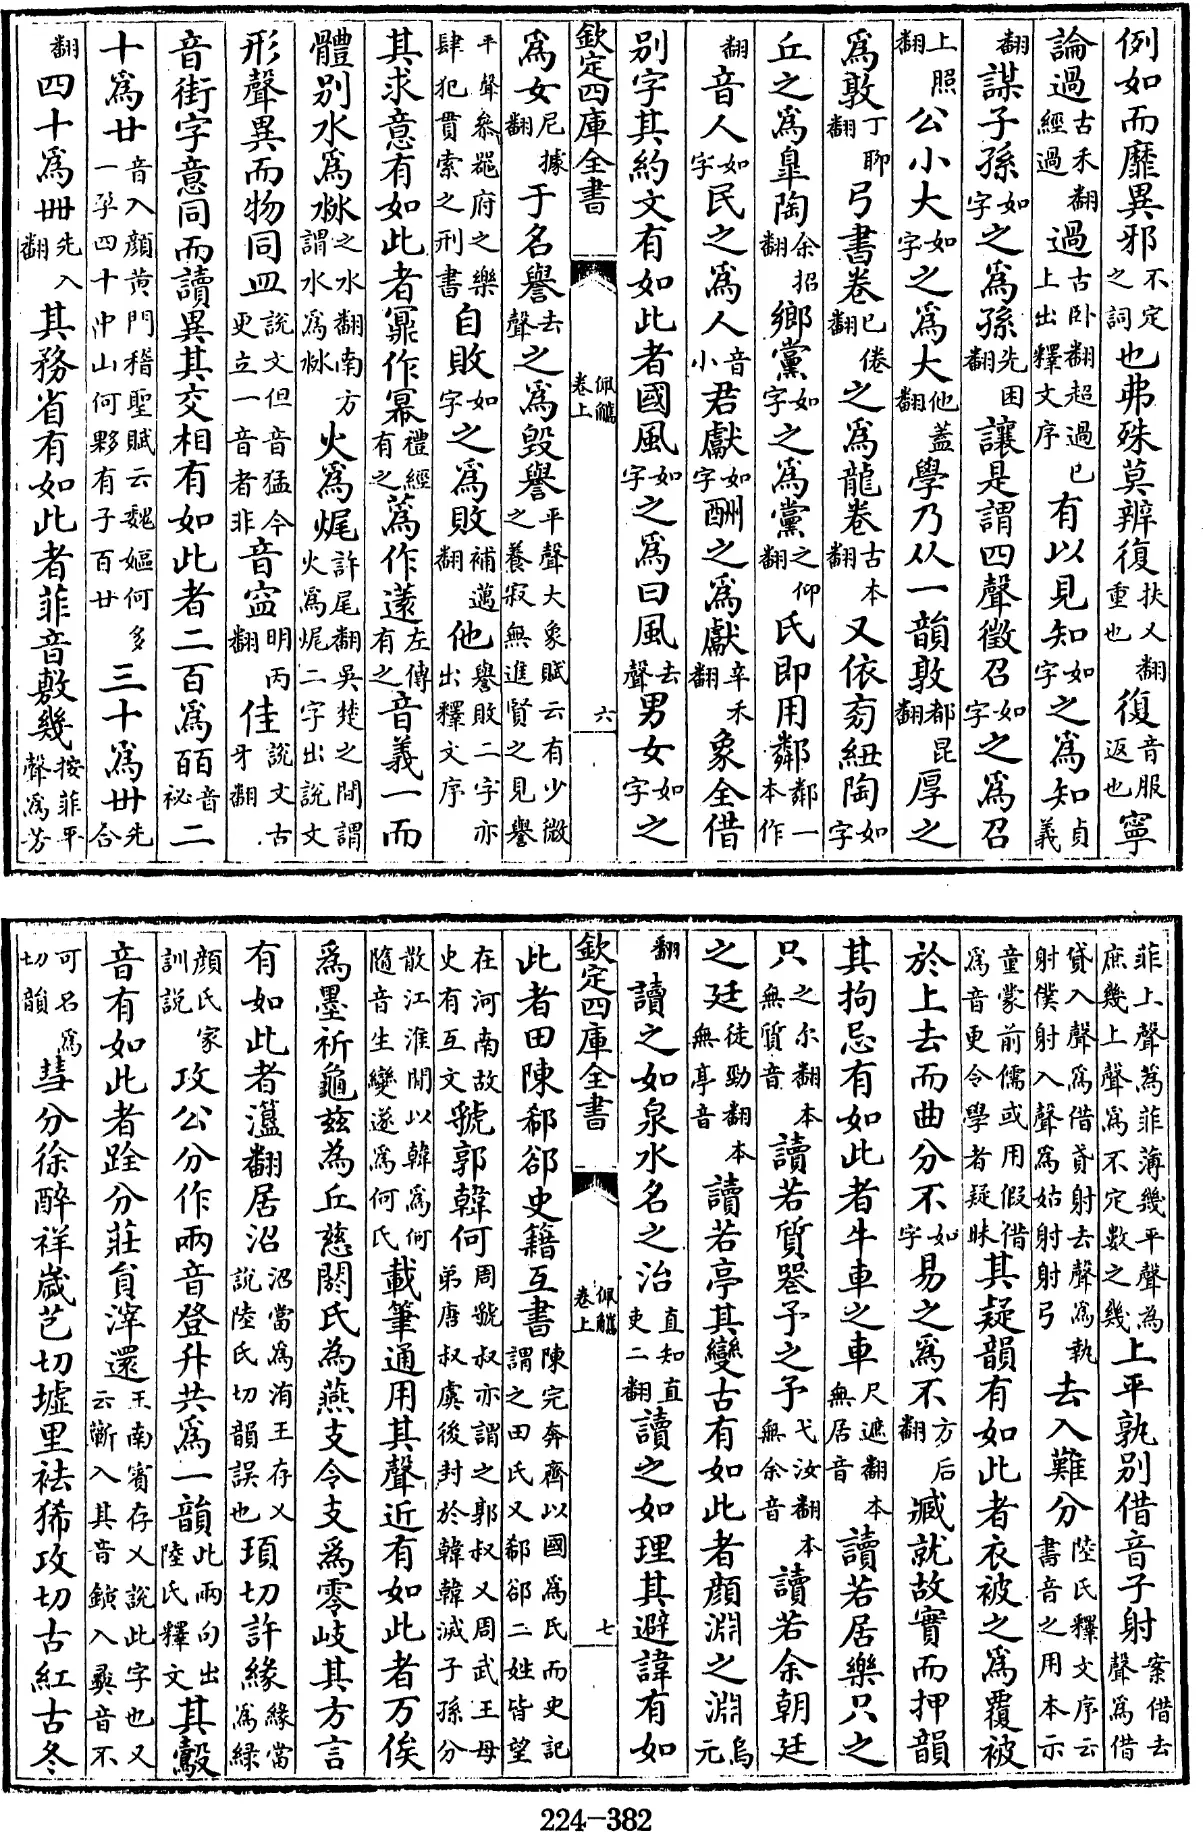 例如而靡異邪不定之詞也弗殊莫辨復扶又翻重也復音服返也寧
論過古禾翻經過過古卧翻超過已上出釋文序有以見知如字之為知貞義
翻謀子孫如字之為孫先困翻讓是謂四聲徵召如字之為召
上照翻公小大如字之為大他蓋翻學乃从一韻敦都昆翻厚之
為敦丁聊翻弓書卷已倦翻之為龍卷古本翻又依旁紐陶如字
丘之為臯陶余招翻鄉黨如字之為黨之仰翻氏即用鄰鄰一本作
翻音人如字民之為人音小君獻如字酬之為獻辛禾翻象全借
別字其約文有如此者國風如字之為曰風去聲男女如字之
欽定四庫全書 佩觿卷上 六
為女尼據翻于名譽去聲之為毀譽平聲大象賦云有少微之養寂無進賢之見譽
平聲叅嚣府之樂肆犯貫索之刑書自敗如字之為敗補邁翻他譽敗二字亦出釋文序
其求意有如此者鼏作幂禮經有之蒍作薳左傳有之音義一而
體別水為沝之水翻南方謂水為沝火為㷄許尾翻吳楚之間謂火為㷄二字出說文
形聲異而物同皿說文但音猛今更立一音者非音盇明丙翻佳說文古牙翻
音街字意同而讀異其交相有如此者二百為皕音祕二
十為廿音入顏黃門稽聖賦云魏嫗何多一孕四十中山何夥有子百廿三十為卅先合
翻四十為卌先入翻其務省有如此者菲音敷幾按菲平聲為芳
菲上聲為菲薄幾平聲為庶幾上聲為不定數之幾上平孰別借音子射案借去聲為借
貸入聲為借貣射去聲為執射僕射入聲為姑射射弓去入難分陸氏釋文序云書音之用本示
童蒙前儒或用假借為音更令學者疑昧其疑韻有如此者衣被之為覆被
於上去而曲分不如字易之為不方后翻臧就故實而押韻
其拘忌有如此者牛車之車尺遮翻本無居音讀若居樂只之
只之尔翻本無質音讀若質器予之予弋汝翻本無余音讀若余朝廷
之廷徒勁翻本無亭音讀若亭其變古有如此者顏淵之淵烏元
翻讀之如泉水名之治直知直吏二翻讀之如理其避諱有如
欽定四庫全書 佩觿卷上 七
此者田陳郗郤史籍互書陳完奔齊以國為氏而史記謂之田氏又郗郤二姓皆望
在河南故史有互文虢郭韓何周虢叔亦謂之郭叔又周武王母弟唐叔虞後封於韓韓滅子孫分
散江淮間以韓為何隨音生變遂為何氏載筆通用其聲近有如此者万俟
為墨祈龜兹為丘慈閼氏為燕支令支為零岐其方言
有如此者薀翻居沼沼當為洧王存乂說陸氏切韻誤也項切許緣緣當為緑
顏氏家訓說攻公分作兩音登升共為一韻此兩句出陸氏釋文其鷇
音有如此者跧分莊負滓還王南賓存乂說此字也又云蘄入其音鎻入彛音不
可名為切韻彗分徐醉祥歲芑切墟里祛狶攻切古紅古冬
224-382